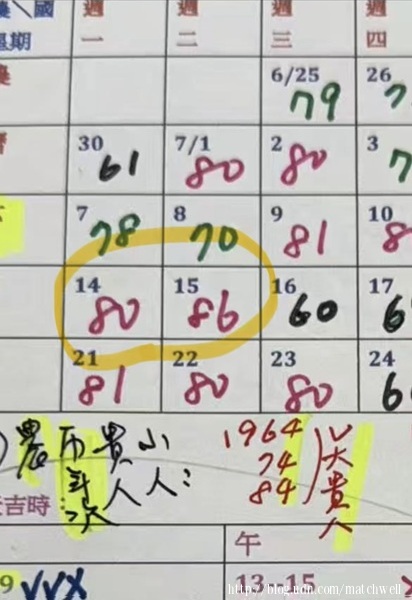 國 週 週 週 週
星期 一 二 三 四
6/25 26
79 7
30 7/1 2 3
61 80 80 7
7 8 9 10
78 70 81 8
14 15 16 17
80 86 60 6
21 22 23 24
81 80 80 6
農 貴 小 1964
年 人 人: 74 大貴人
次 84
吉時 午
9 VVX 13 -15
http://blog.udn.com/matchwell